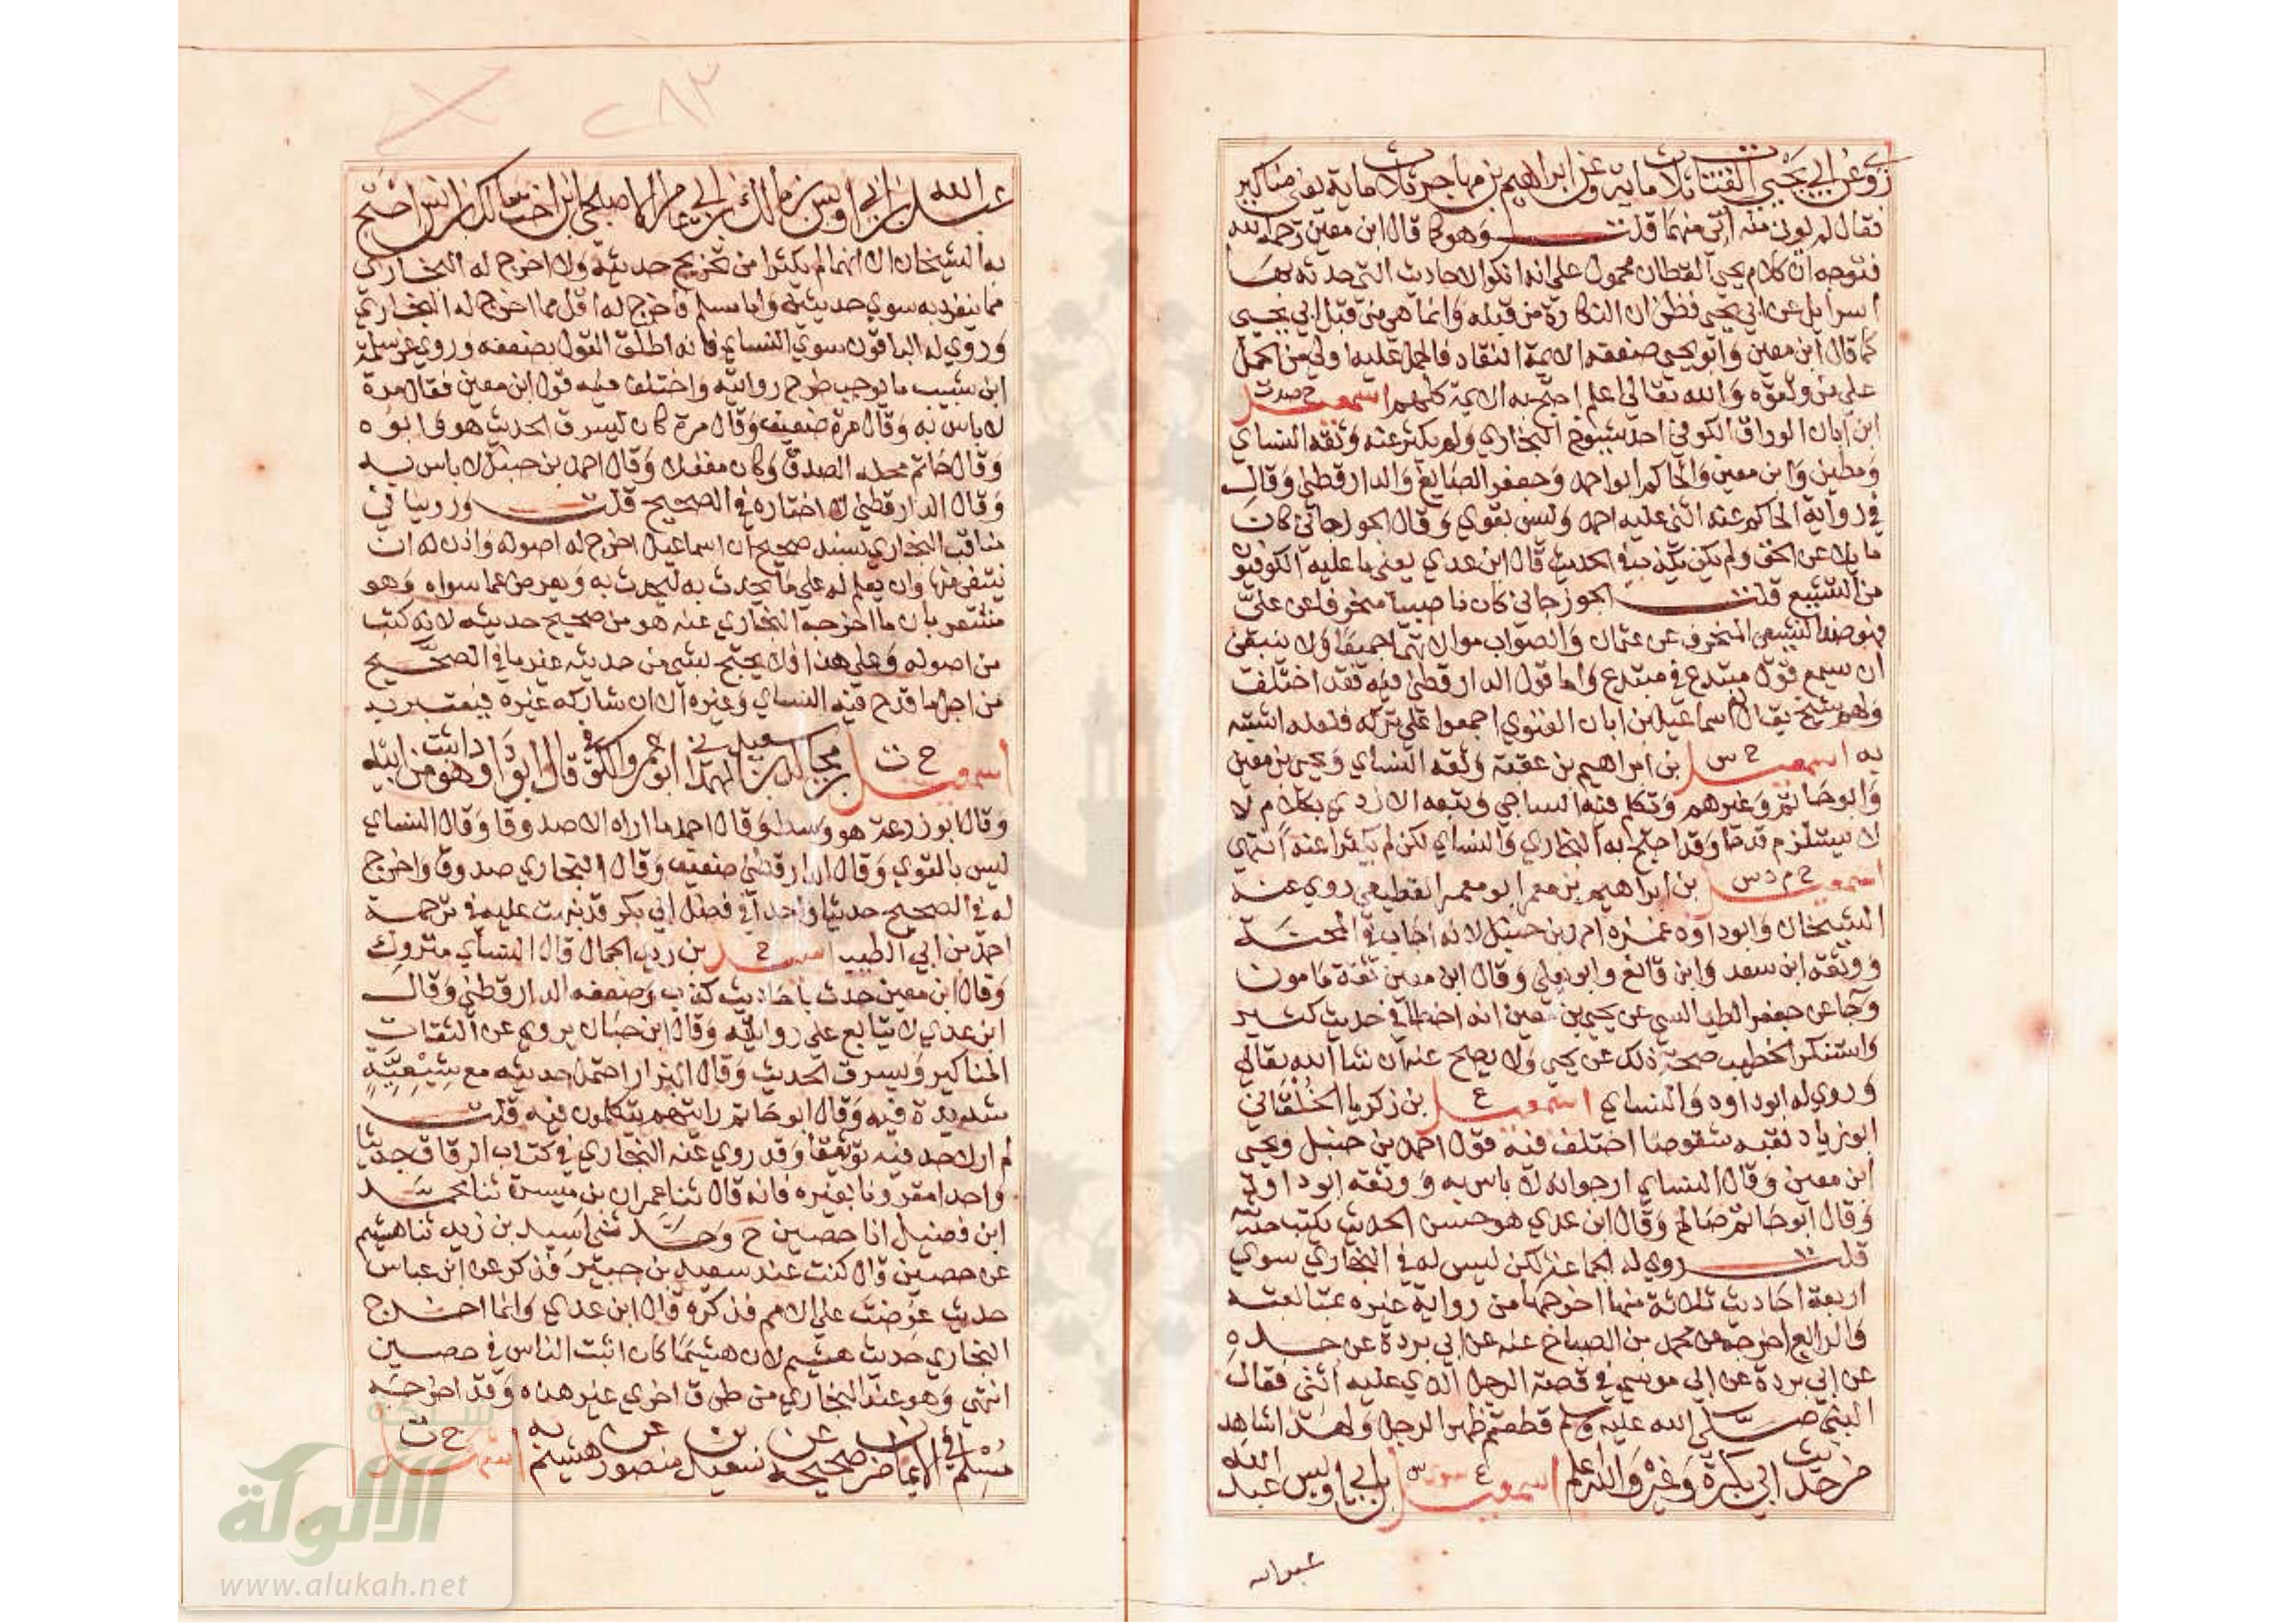 روي عن ابي يحيى القتات ثلاثماية وعن ابراهيم بن مهاجر ثلاث ماية يعني مناكير
فقال لم يؤت منه اتى منهما قلت وهو كما قال ابن معين رحمه الله
فتوجه ان كلام يحيى القطان محمول على انه انكر الاحاديث التي حدثه بها
اسرايل عن ابي يحيى فظن ان النكارة من قبله وانما هي من قبل ابي يحيى
كما قال ابن معين وابو يحيى ضعفه الايمة النقاد فالحمل عليه اولى من الحمل
على من وثقوه والله تعالى اعلم احتج به الايمة كلهم اسمعيل خ صد ت
ابن ابان الوراق الكوفي احد شيوخ البخاري ولم يكثر عنه وثقه النساي
ومطين وابن معين والحاكم ابو احمد وجعفر الصايغ والدارقطني وقال
في رواية الحاكم عنه اثنى عليه احمد وليس بقوي وقال الجوزجاني كان
مايلا عن الحق ولم يكن يكذب في الحديث قال ابن عدي يعني ما عليه الكوفيون
من التشيع قلت الجوزجاني كان ناصبيا منحرفا عن علي
فهو ضد الشيعي المنحرف عن عثمان والصواب موالاتهما جميعا ولا ينبغي
ان يسمع قول مبتدع في مبتدع واما قول الدارقطني فيه فقد اختلف
ولهم شيخ يقال له اسماعيل بن ابان الغنوي اجمعوا على تركه فلعله اشتبه
به اسمعيل خ س بن ابراهيم بن عقبة وثقه النساي ويحيى بن معين
وابو حاتم وغيرهم وتكلم فيه الساجي وتبعه الازدي بكلام لا
لا يستلزم قدحا وقد احتج به البخاري والنساي لكن لم يكثرا عنه انتهى
اسمعيل خ م د س بن ابراهيم بن معمر ابو معمر القطيعي روى عنه
الشيخان وابو داود غمزه احمد بن حنبل لانه اجاب في المحنة
ووثقه ابن سعد وابن قانع وابو يعلى وقال ابن معين ثقة مامون
وجا عن جعفر الطيالسي عن يحيى بن معين انه اخطا في حديث كثير
واستنكر الخطيب صحة ذلك عن يحيى ولا يصح عنه ان شا الله تعالى
وروى له ابو داود والنساي اسمعيل ع بن زكريا الخلقاني
ابو زياد لقبه شقوصا اختلف فيه قول احمد بن حنبل ويحيى
ابن معين وقال النساي ارجو انه لا باس به ووثقه ابو داود
وقال ابو حاتم صالح وقال ابن عدي هو حسن الحديث يكتب حديثه
قلت روى له الجماعة لكن ليس له في البخاري سوى
اربعة احاديث ثلاثة منها اخرجها من رواية غيره بمتابعته
والرابع اخرجه عن محمد بن الصباح عنه عن ابي بردة عن جده
عن ابي بردة عن ابي موسى في قصة الرجل الذي عليه اثنى فقال
النبي صلى الله عليه وسلم قطعتم ظهر الرجل ولهذا شاهد
من حديث ابي بكرة وغيره والله اعلم اسمعيل ع سوى س بن ابي اويس عبد الله
عبد الله
٢٨٣
عبد الله بن ابي اويس بن مالك بن ابي عامر الاصبحي ابن اخت مالك بن انس احتج
به الشيخان الا انهما لم يكثرا من تخريج حديثه ولا اخرج له البخاري
مما ينفرد به سوى حديثين واما مسلم فاخرج له اقل مما اخرج له البخاري
وروى له الباقون سوى النساي فانه اطلق القول بضعفه وروى عن سلمة
ابن شبيب ما يوجب طرح روايته واختلف فيه قول ابن معين فقال مرة
لا باس به وقال مرة ضعيف وقال مرة كان يسرق الحديث هو وابوه
وقال حاتم محله الصدق وكان مغفلا وقال احمد بن حنبل لا باس به
وقال الدارقطني لا اختاره في الصحيح قلت وروينا في
مناقب البخاري بسند صحيح ان اسماعيل اخرج له اصوله واذن له ان
ينتقي منها وان يعلم له على ما يحدث به ليحدث به ويعرض عما سواه وهو
مشعر بان ما اخرجه البخاري عنه هو من صحيح حديثه لانه كتب
من اصوله وعلى هذا فلا يحتج بشي من حديثه غير ما في الصحيح
من اجل ما قدح فيه النساي وغيره الا ان شاركه غيره فيعتبر به
اسمعيل خ ت بن مجالد بن سعيد الهمداني ابو عمر والكوفي قال ابو داود هو اثبت من ابيه
وقال ابو زرعة هو وسط وقال احمد ما اراه الا صدوقا وقال النساي
ليس بالقوي وقال الدارقطني ضعيف وقال البخاري صدوق واخرج
له في الصحيح حديثا واحدا في فضل ابي بكر قد نبهت عليه في ترجمة
احمد بن ابي الطيب اسيد خ بن زيد الجمال قال النساي متروك
وقال ابن معين حدث باحاديث كذب وضعفه الدارقطني وقال
ابن عدي لا يتابع على روايته وقال ابن حبان يروي عن الثقات
المناكير ويسرق الحديث وقال البزار احتمل حديثه مع شيعية
شديدة فيه وقال ابو حاتم رايتهم يتكلمون فيه قلت
لم ار لاحد فيه توثيقا وقد روى عنه البخاري في كتاب الرقاق حديثا
واحدا مقرونا بغيره فانه قال ثنا عمران بن ميسرة ثنا محمد
ابن فضيل انا حصين ح وحدثني اسيد بن زيد ثنا هشيم
عن حصين قال كنت عند سعيد بن جبير فذكر عن ابن عباس
حديث عرضت علي الامم فذكره قال ابن عدي وانما اخرج
البخاري حديث هشيم لان هشيما كان اثبت الناس في حصين
انتهى وهو عند البخاري من طرق اخرى غير هذه وقد اخرجه
مسلم في الايمان من صحيحه عن سعيد بن منصور عن هشيم به اسمعيل خ ت
شبكة
الألوكة
www.alukah.net